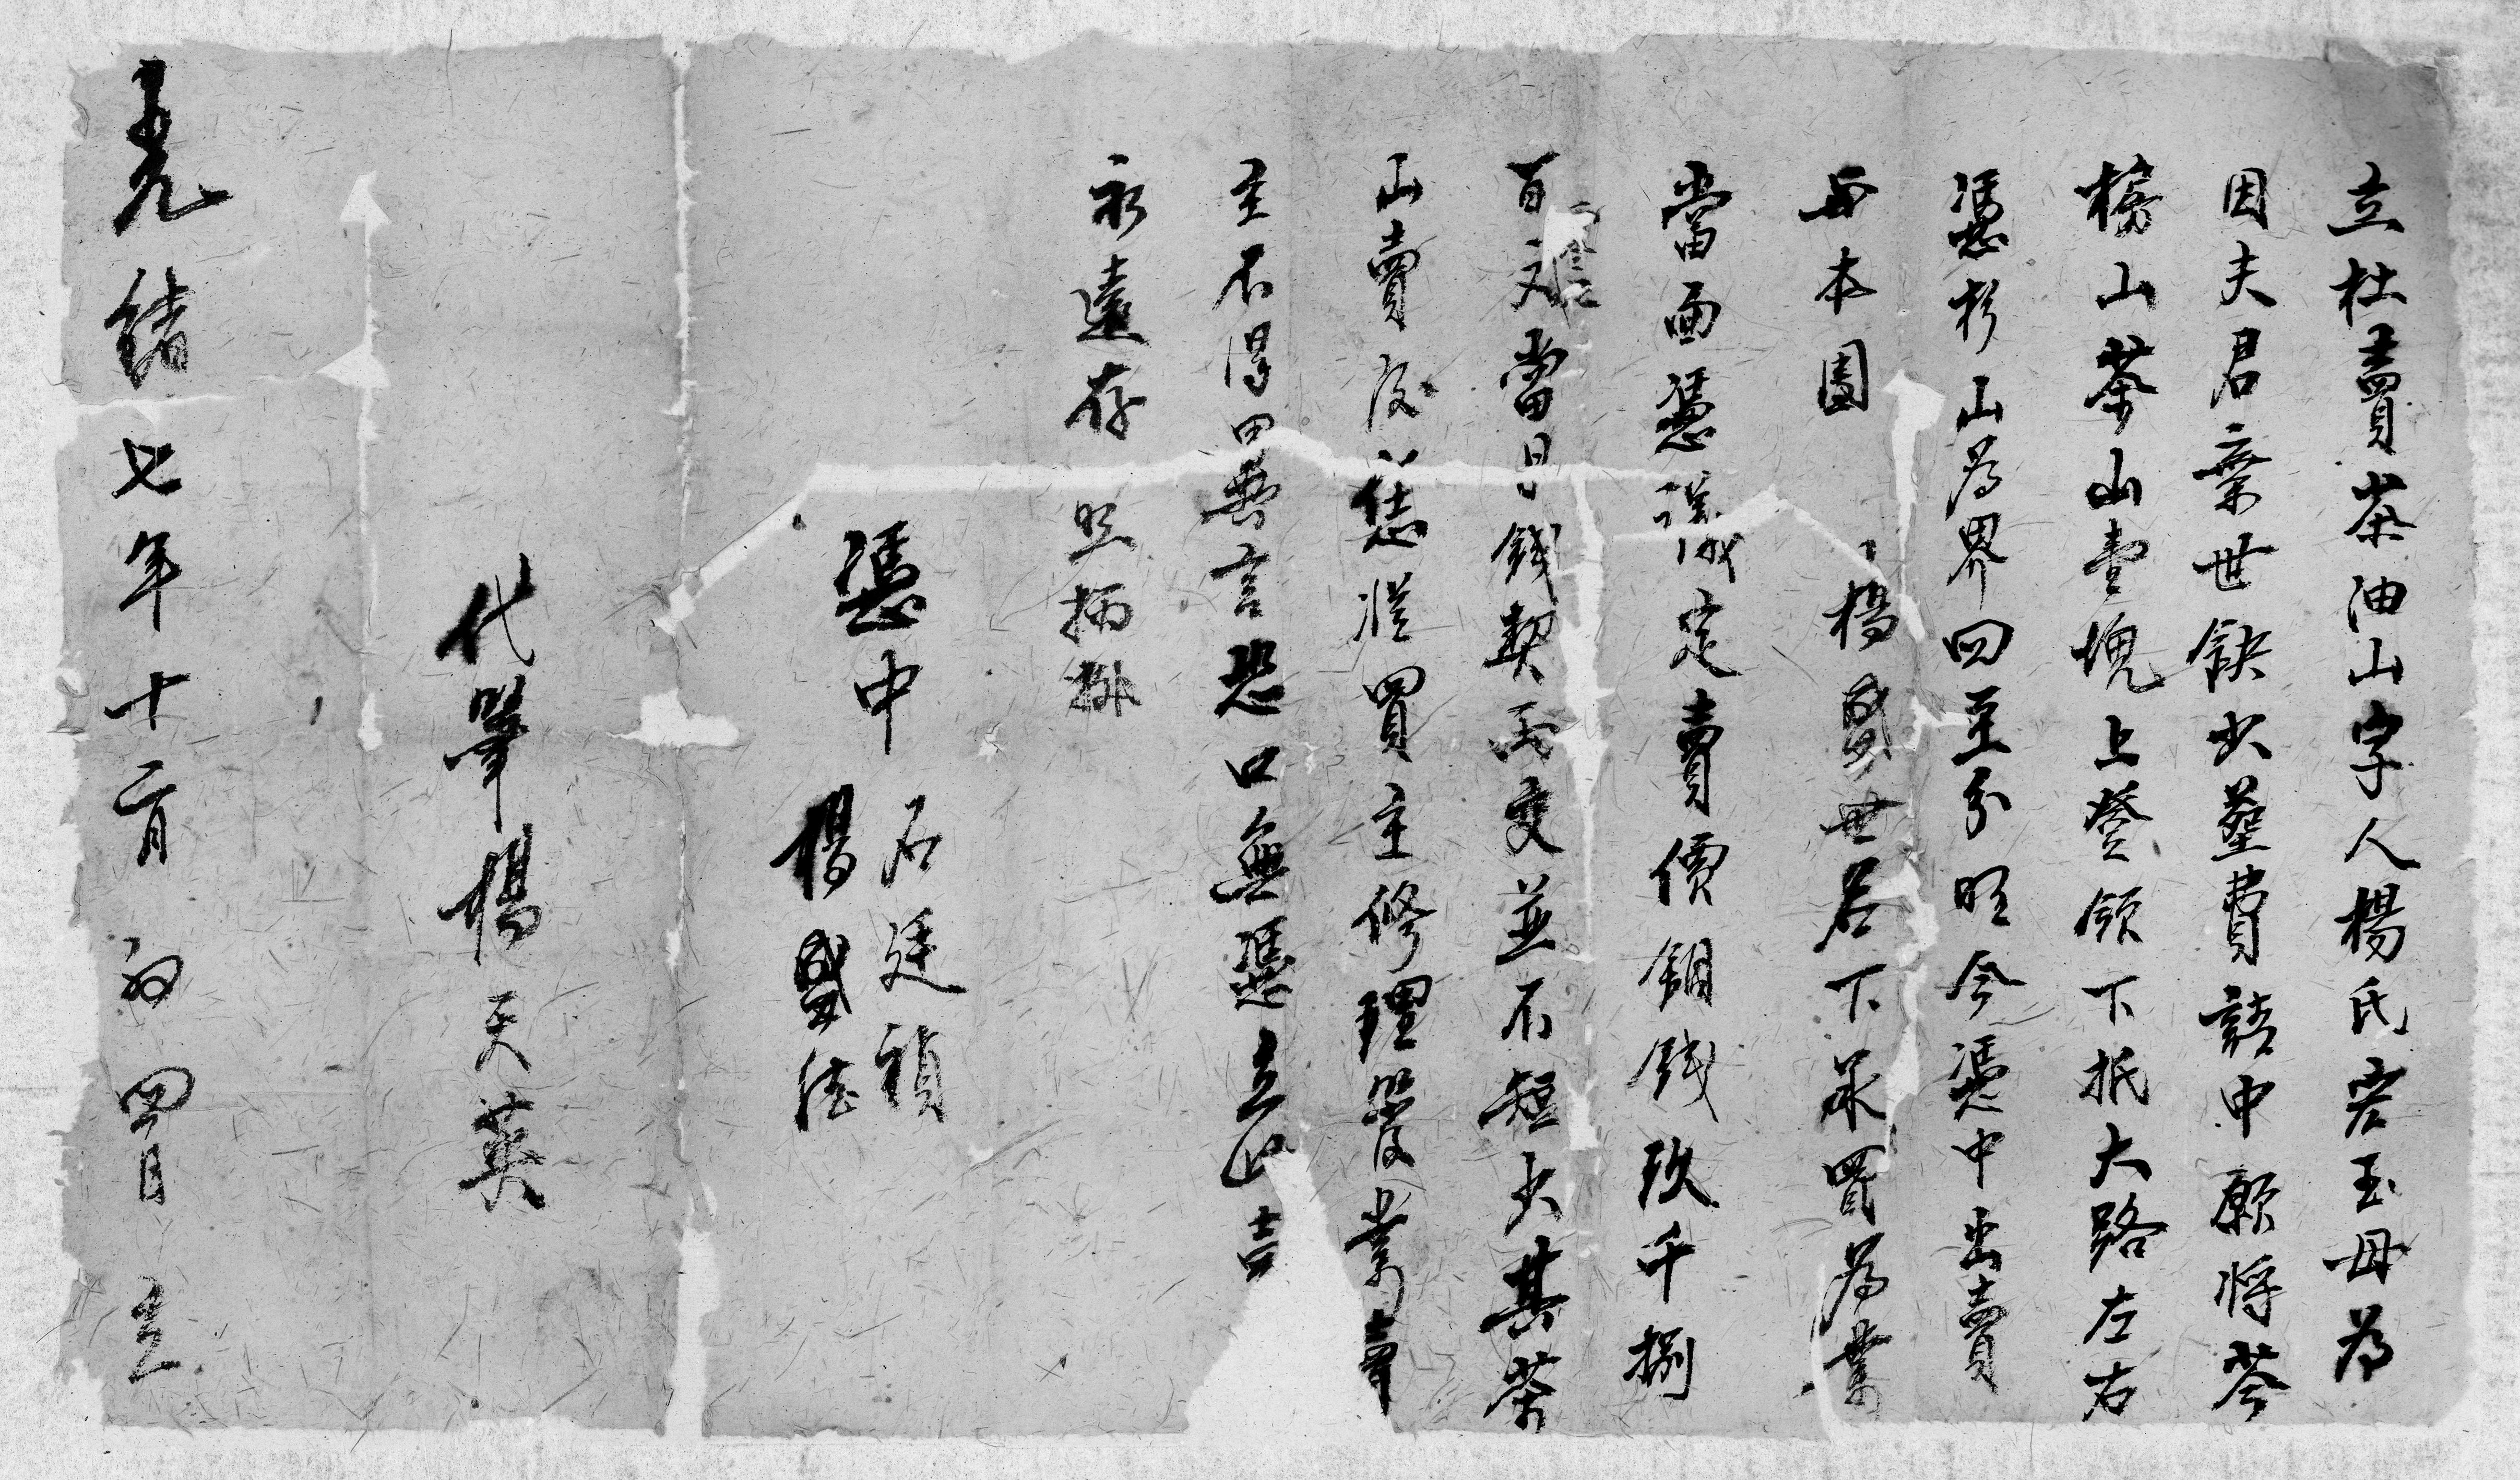 立杜賣茶油山字人楊氏宏玉母为
因夫君棄世缺少塟費請中願將芩
榜山茶山壹塊上登領下抵大路左右
憑杉山为界四至分明今憑中出賣
与本團 楊盛世名下承買为業
當面憑議定賣價銅錢玖千捌
百文當日錢契両交並不短少其茶
山賣後恁從買主修理管業賣
主不得異言恐口無憑立此吉
永遠存照柄㨿
憑中 石廷禎
楊盛德
代筆楊天英
光緒七年十二月初四日立